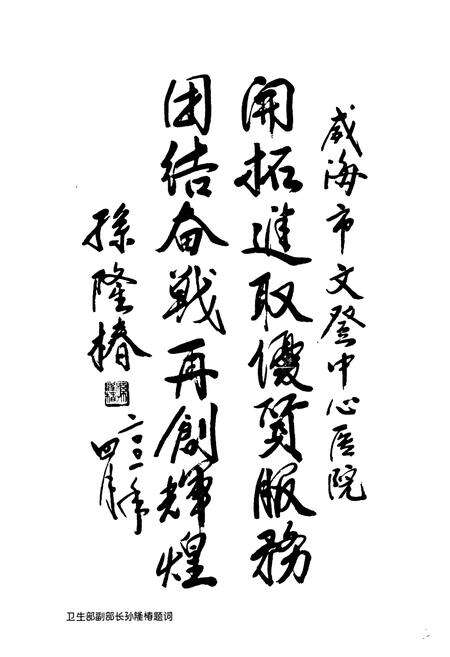 威海市文登中心医院
開拓進取優質服務
团结奋战再創輝煌
孫隆椿
二〇〇一年
四月
卫生部副部长孙隆椿题词